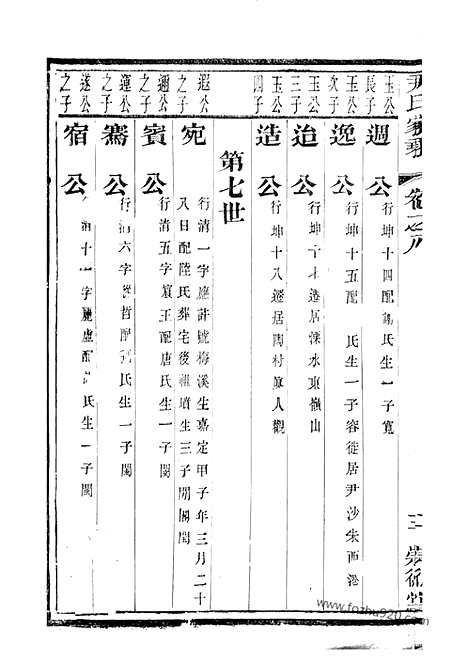 尹氏家乘
卷之八
三
玉公長子
週公
行坤十四配 氏生一子寬
玉公次子
逸公
行坤十五配 氏生一子容徙居尹沙朱西港
玉公三子
迨公
行坤十七遷居溧水東嶺山
玉公四子
造公
行坤十八遷居陶村眞人觀
第七世
遐公之子
宛
行清一字應許號梅溪生嘉定甲子年三月二十
八日配陸氏葬宅後祖墳生三子開閣閏
邇公之子
賓公
行清五字 王配唐氏生一子閔
運公之子
騫公
行清六字 哲配 氏生一子閩
遂公之子
宿公
行清十一字 虛配 氏生一子閾
www.fozhu920.com